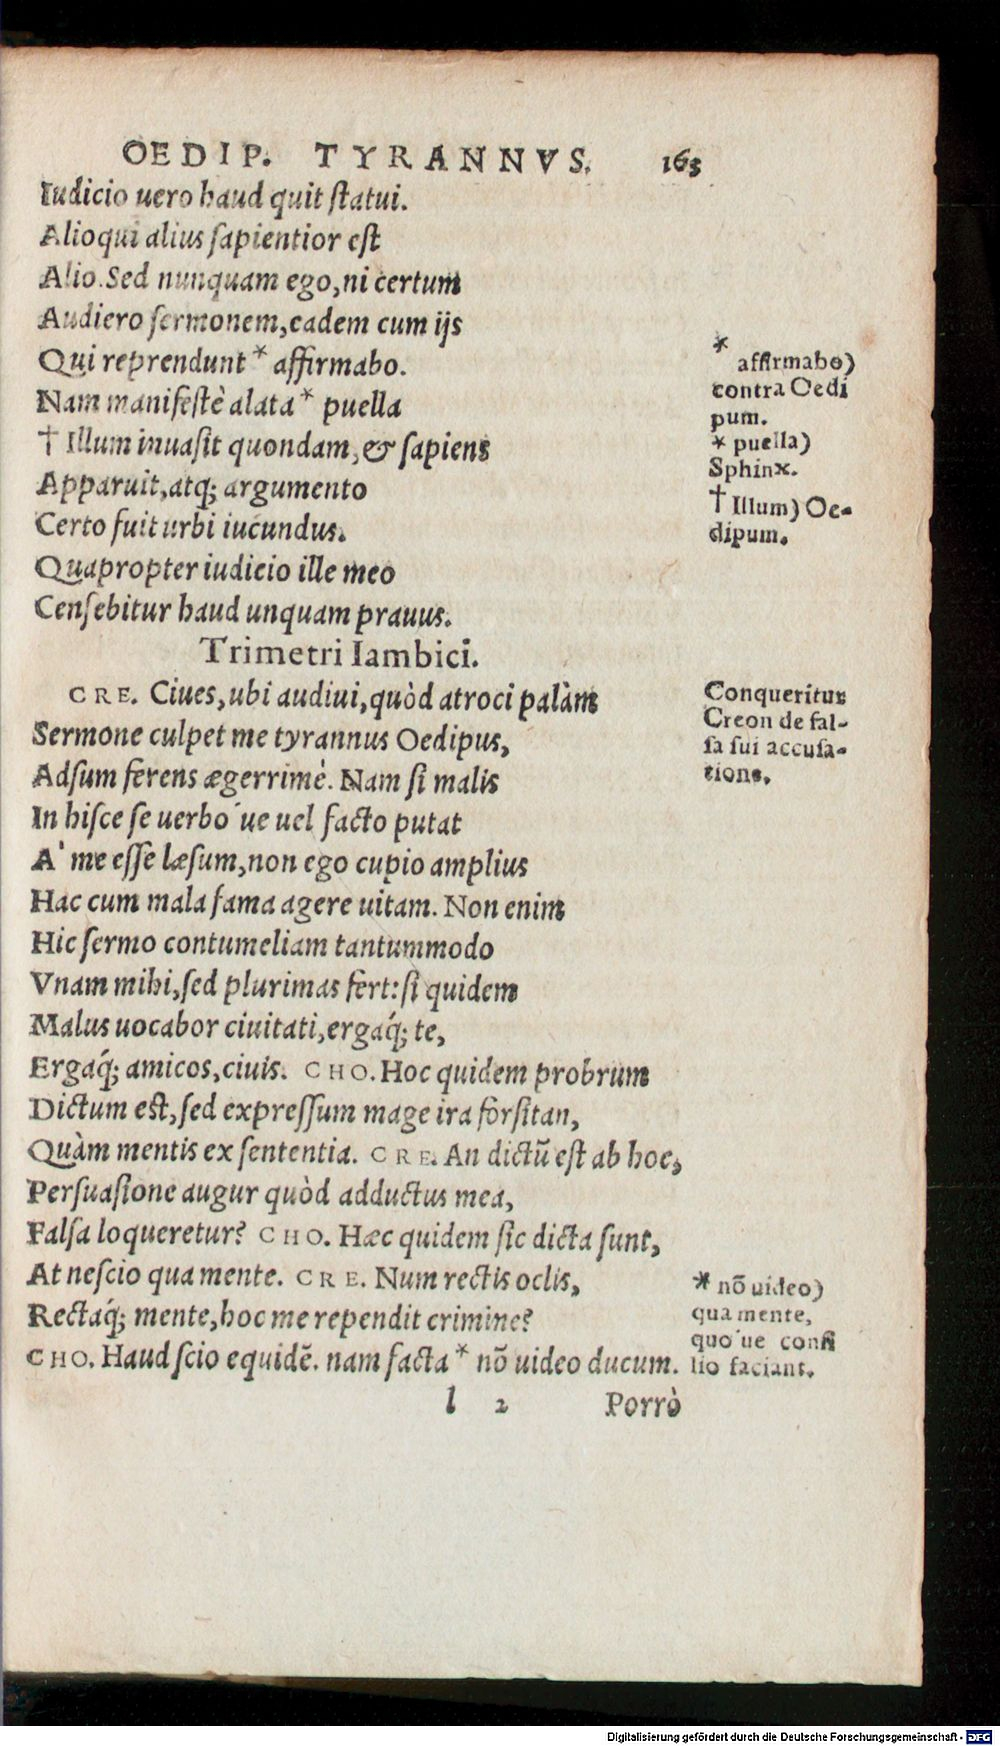 OEDIP. TYRANNVS. 163
Iudicio uero haud quit ſtatui.
Alioqui alius ſapientior eſt
Alio. Sed nunquam ego, ni certum
Audiero ſermonem, eadem cum ijs
Qui reprendunt * affirmabo.
Nam manifeſtè alata * puella
† Illum inuaſit quondam, & ſapiens
Apparuit, atq; argumento
Certo fuit urbi iucundus.
Quapropter iudicio ille meo
Cenſebitur haud unquam prauus.
* affirmabo)
contra Oedi
pum.
* puella)
Sphinx.
† Illum) Oe-
dipum.
Trimetri Iambici.
CRE. Ciues, ubi audiui, quòd atroci palàm
Sermone culpet me tyrannus Oedipus,
Adſum ferens ægerrimè. Nam ſi malis
In hiſce ſe uerbo´ue uel facto putat
A' me eſſe læſum, non ego cupio amplius
Hac cum mala fama agere uitam. Non enim
Hic ſermo contumeliam tantummodo
Vnam mihi, ſed plurimas fert: ſi quidem
Malus uocabor ciuitati, ergaq́; te,
Ergaq́; amicos, ciuis. CHO. Hoc quidem probrum
Dictum eſt, ſed expreſſum mage ira forſitan,
Quàm mentis ex ſententia. CRE. An dictũ eſt ab hoc,
Perſuaſione augur quòd adductus mea,
Falſa loqueretur? CHO. Hæc quidem ſic dicta ſunt,
At neſcio qua mente. CRE. Num rectis oclis,
Rectaq́; mente, hoc me rependit crimine?
CHO. Haud ſcio equidẽ. nam facta * nõ uideo ducum.
Conqueritur
Creon de fal-
ſa ſui accuſa-
tione.
* nõ uideo)
qua mente,
quo´ue conſi
lio faciant.
l 2 Porrò
Digitalisierung gefördert durch die Deutsche Forschungsgemeinschaft - DFG